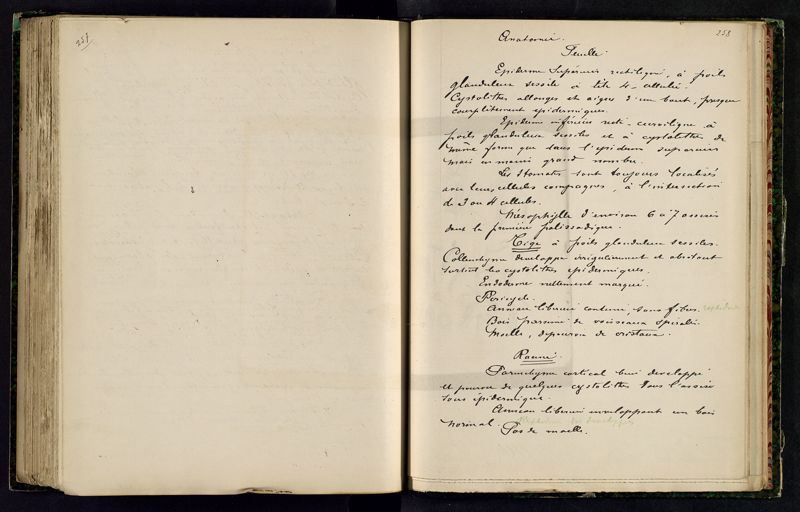 257
258
Anatomie.
Feuille.
Epiderme supérieur rectiligne, à poils
glanduleux sessiles à tête 4-cellulée.
Cystolithes allongés et aigus d'un bout, presque
complètement épidermiques.
Epiderme inférieur recti-curviligne à
poils glanduleux sessiles et à cystolithes de
même forme que dans l'épiderme supérieur
mais en moins grand nombre.
Les stomates sont toujours localisés
avec leurs cellules compagnes, à l'intersection
de 3 ou 4 cellules.
Mésophylle d'environ 6 à 7 assises
dont la première palissadique.
Tige à poils glanduleux sessiles.
Collenchyme développé irrégulièrement et abritant
surtout les cystolithes épidermiques.
Endoderme nettement marqué.
Péricycle.
Anneau libérien continu, sans fibres.
Bois parsemé de vaisseaux spiralés.
Moelle, dépourvue de cristaux.
Racine.
Parenchyme cortical bien développé
et pourvu de quelques cystolithes dans l'assise
sous épidermique.
Anneau libérien enveloppant un bois
normal.
Pas de moelle.